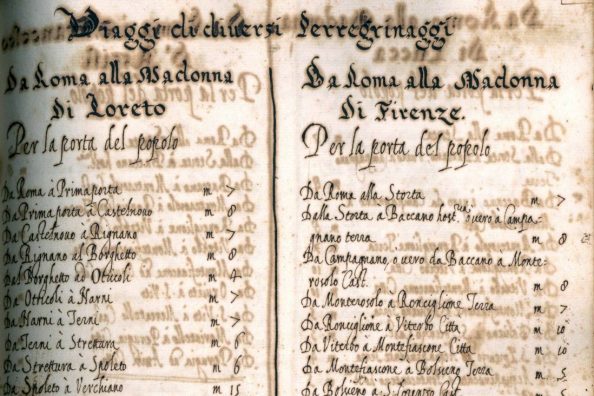 Viaggi di diversi Perregrinaggi
Da Roma alla Madonna
Di Loreto
Per la porta del popolo
Da Roma à Prima porta m 7
Da Prima porta à Castelnovo m 8
Da Castelnovo à Rignano m 7
Da Rignano al Borghetto m 8
Dal Borghetto ad Otricoli m 4
Da Otricoli à Narni m 7
Da Narni à Terni m 7
Da Terni à Strettura m 6
Da Strettura à Spoleto m 6
Da Spoleto à Verchiano m 15
Da Roma alla Madonna
Di Firenze.
Per la porta del popolo
Da Roma alla Storta m 7
Dalla Storta à Baccano host. ouero à Campa-
gnano terra m 8
Da Campagnano, ò vero da Baccano à Monte-
rosolo Cast. m 8
Da Monterosolo à Ronciglione Terra m 7
Da Ronciglione à Viterbo Citta m 10
Da Viterbo à Montefiascone Citta m 10
Da Montefiascone à Bolseno Terra m 5
Da Bolseno à S. Lorenzo Cast. m 5